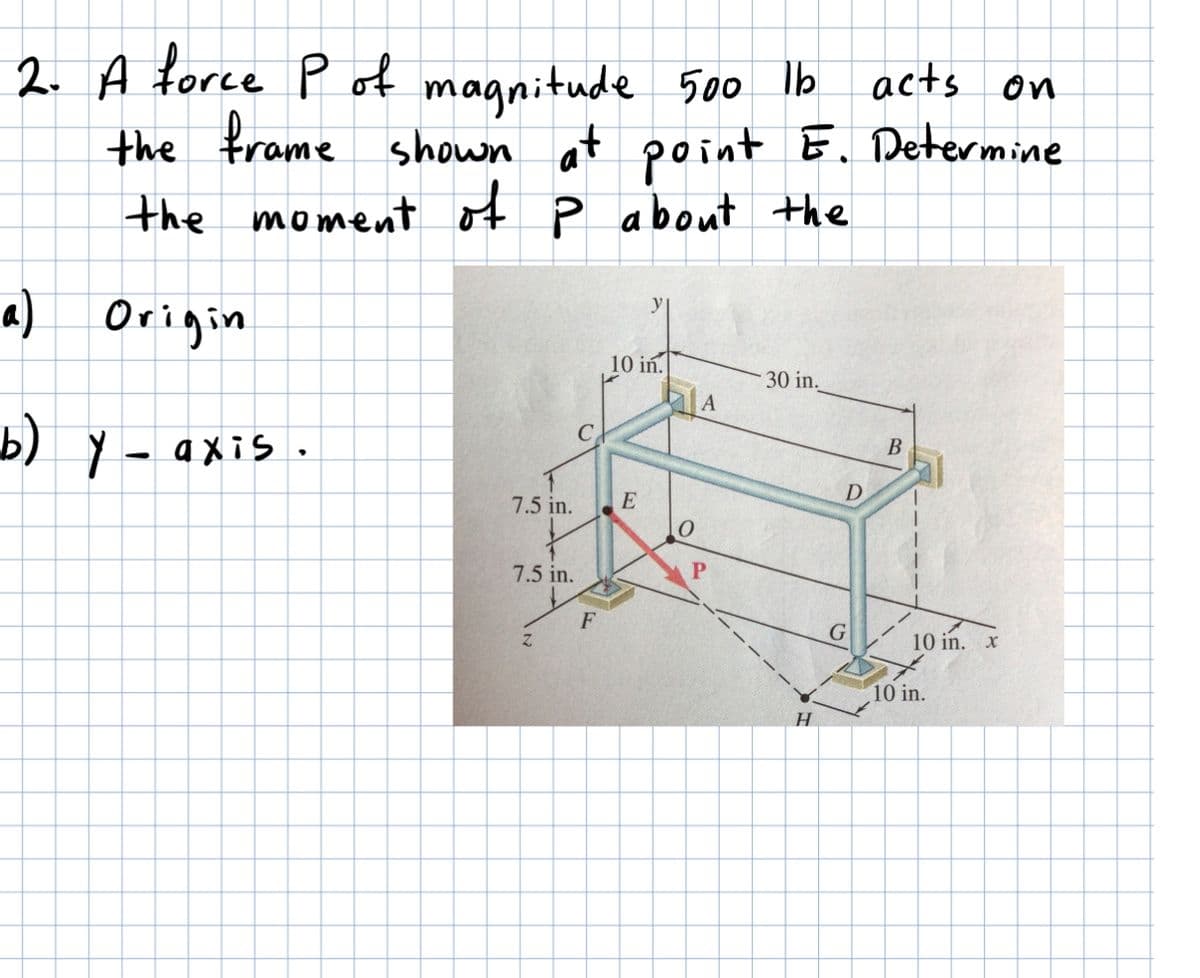 2. A force P of magnitude 500 lb acts on
the frame shown at point E. Determine
the moment of P about the
a) Origin
b) y - axis.
y
10 in.
30 in.
A
C
B
D
7.5 in.
E
O
7.5 in.
P
F
G
z
10 in.
x
10 in.
H